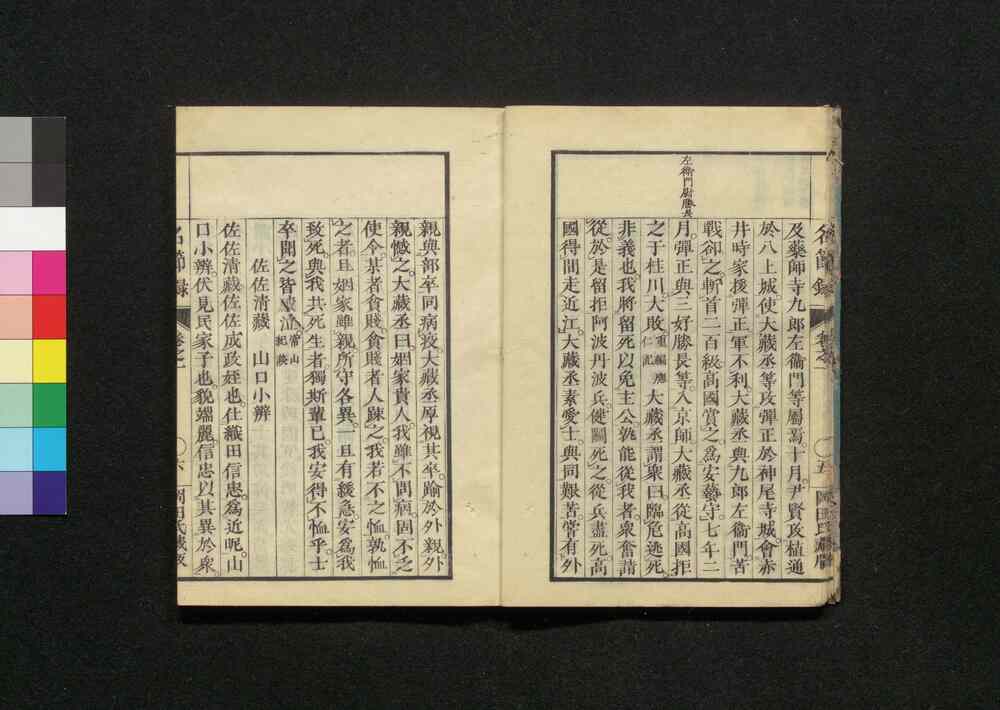 名節録
卷之一
五
岡田氏藏版
及藥師寺九郎左衞門等屬焉十月尹賢攻植通
於八上城使大藏丞等攻彈正於神尾寺城會赤
井時家援彈正軍不利大藏丞與九郎左衞門苦
戰卻之斬首二百級高國賞之爲安藝守七年二
左衞門尉勝長
月彈正與三好勝長等入京師大藏丞從高國拒
之于桂川大敗重編應仁記大藏丞謂衆曰臨危逃死
非義也我將留死以免主公孰能從我者衆奮請
從於是留拒阿波丹波兵健鬭死之從兵盡死高
國得間走近江大藏丞素愛士與同艱苦嘗有外
親與部卒同病疫大藏丞厚視其卒踰於外親外
親憾之大藏丞曰姻家貴人我雖不問病固不乏
使令某者貧賤貧賤者人踈之我若不之恤孰恤
之者且姻家雖親所守各異一旦有緩急安爲我
致死與我共死生者獨斯輩已我安得不恤乎士
卒聞之皆感泣常山紀談
佐佐清藏 山口小辨
佐佐清藏佐佐成政姪也仕織田信忠爲近昵山
口小辨伏見民家子也貌端麗信忠以其異於衆
名節録
卷之一
六
岡田氏藏版